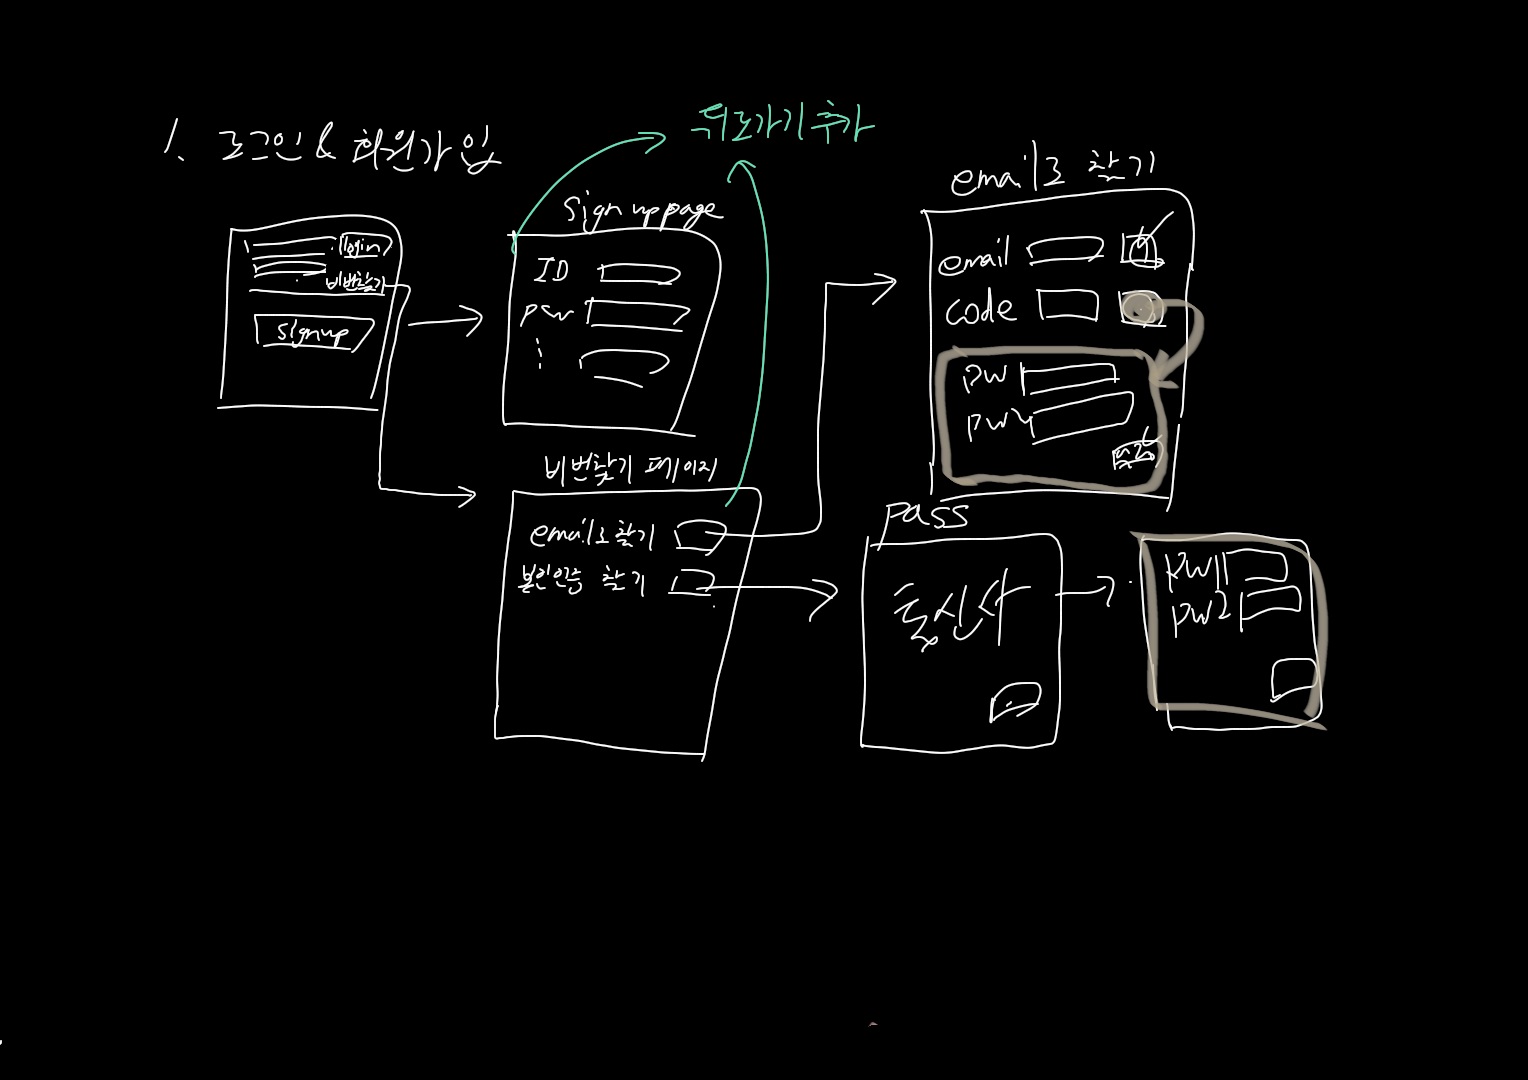 1. 로그인 & 회원가입
뒤로가기 추가
login
비번찾기
signup
Sign up page
ID
pw
비번찾기 페이지
email로 찾기
본인인증 찾기
email로 찾기
email
code
pw
pw
pass
통신사
pw1
pw2